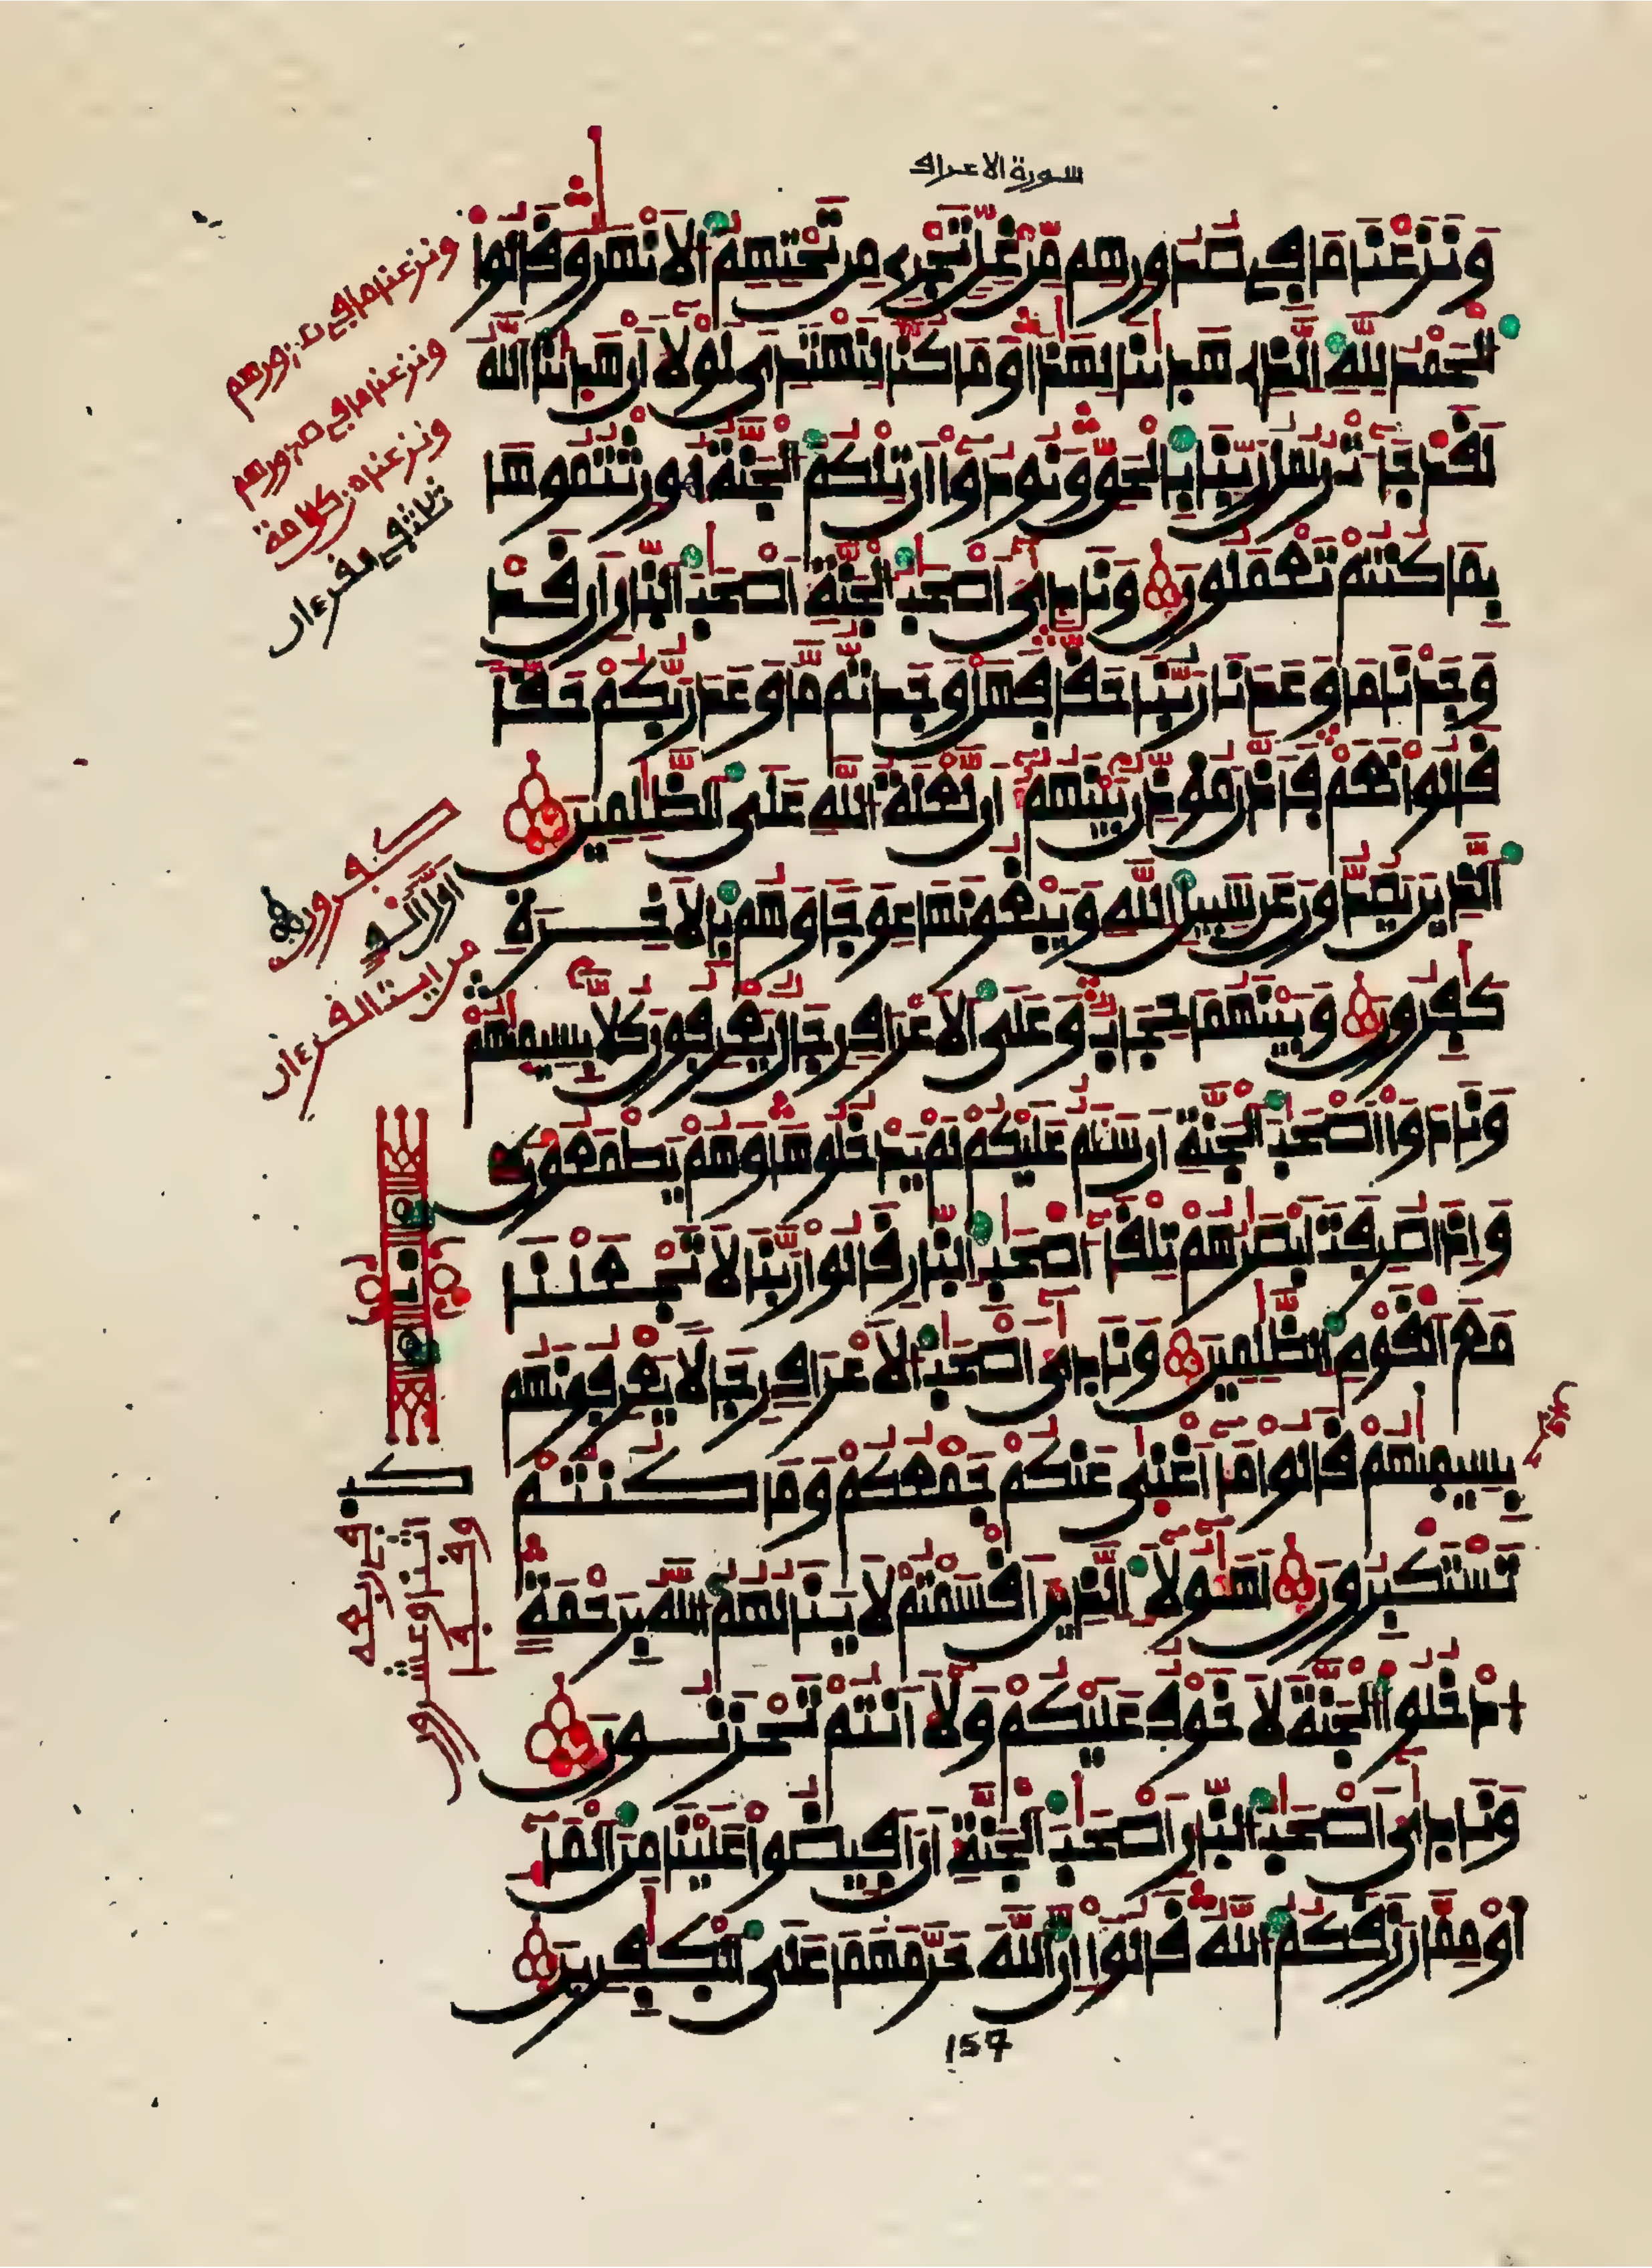 سورة الاعراف
وَنَزَعْنَا مَا فِي صُدُورِهِم مِّنْ غِلٍّ تَجْرِے مِن تَحْتِهِمُ الَانْهَٰرُ وَقَالُوا
الْحَمْدُ لِلهِ الذِے هَدَىٰنَا لِهَٰذَا وَمَا كُنَّا لِنَهْتَدِيَ لَوْلَا أَنْ هَدَىٰنَا اللَّهُ
لَقَدْ جَاءَتْ رُسُلُ رَبِّنَا بِالْحَقِّ وَنُودُوا أَن تِلْكُمُ الْجَنَّةُ أُورِثْتُمُوهَا
بِمَا كُنتُمْ تَعْمَلُونَ وَنَادَىٰ أَصْحَٰبُ الْجَنَّةِ أَصْحَٰبَ النَّارِ أَن قَدْ
وَجَدْنَا مَا وَعَدَنَا رَبُّنَا حَقًّا فَهَلْ وَجَدتُّم مَّا وَعَدَ رَبُّكُمْ حَقًّا
قَالُوا نَعَمْ فَأَذَّنَ مُؤَذِّنٌ بَيْنَهُمْ أَن لَّعْنَةُ اللَّهِ عَلَى الظَّٰلِمِينَ
الذِينَ يَصُدُّونَ عَن سَبِيلِ اللَّهِ وَيَبْغُونَهَا عِوَجًا وَهُم بِالَاخِرَةِ
كَٰفِرُونَ وَبَيْنَهُمَا حِجَابٌ وَعَلَى الَاعْرَافِ رِجَالٌ يَعْرِفُونَ كُلًّا بِسِيمَٰهُمْ
وَنَادَوَا اَصْحَٰبَ الْجَنَّةِ أَن سَلَٰمٌ عَلَيْكُمْ لَمْ يَدْخُلُوهَا وَهُمْ يَطْمَعُونَ
وَإِذَا صُرِفَتَ اَبْصَٰرُهُمْ تِلْقَاءَ اصْحَٰبِ النَّارِ قَالُوا رَبَّنَا لَا تَجْعَلْنَا
مَعَ الْقَوْمِ الظَّٰلِمِينَ وَنَادَىٰ أَصْحَٰبُ الَاعْرَافِ رِجَالًا يَعْرِفُونَهُم
بِسِيمَٰهُمْ قَالُوا مَا أَغْنَىٰ عَنكُمْ جَمْعُكُمْ وَمَا كُنتُمْ
تَسْتَكْبِرُونَ أَهَٰؤُلَاءِ الذِينَ أَقْسَمْتُمْ لَا يَنَالُهُمُ اللَّهُ بِرَحْمَةٍ
ادْخُلُوا الْجَنَّةَ لَا خَوْفٌ عَلَيْكُمْ وَلَا أَنتُمْ تَحْزَنُونَ
وَنَادَىٰ أَصْحَٰبُ النَّارِ أَصْحَٰبَ الْجَنَّةِ أَنَ اَفِيضُوا عَلَيْنَا مِنَ الْمَاءِ
أَوْ مِمَّا رَزَقَكُمُ اللَّهُ قَالُوا إِنَّ اللَّهَ حَرَّمَهُمَا عَلَى الْكَٰفِرِينَ
157
ونزعنا ما في صدورهم
ونزعنا ما في صدورهم
ثلاثة في القرءان
كفرون
من
القرءان